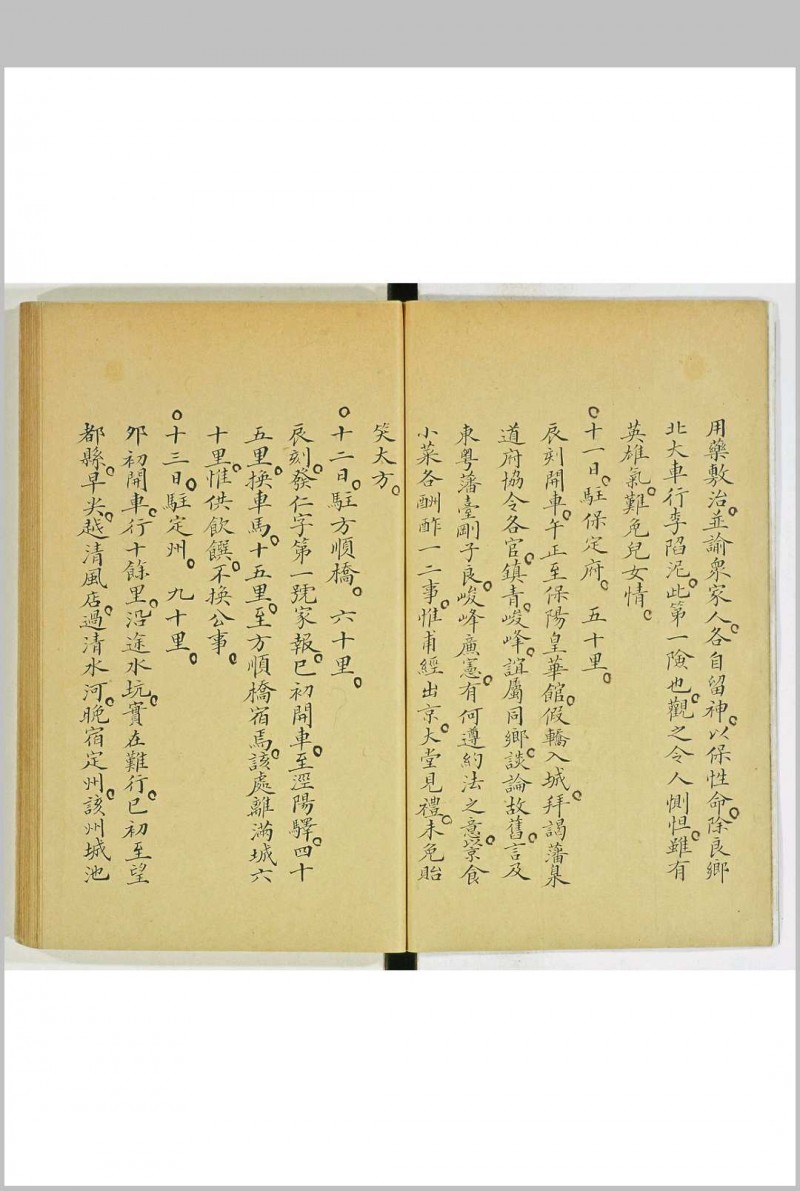 用藥敷治。並諭衆家人。各自留神。以保性命。除良鄉
北大車行李陷泥。此第一險也。觀之令人惻怛。雖有
英雄氣。難免兒女情。
○十一日。駐保定府。五十里。
辰刻開車。午正至保陽皇華館。假轎入城。拜謁藩臬
道府協令各官。鎮青峻峰。誼屬同鄉。談論故舊。言及
東粵藩臺剛子良。峻峰廉憲。有何遵約法之意。鱟食
小菜各酬酢一二事。惟甫經出京。大堂見禮。未免貽
笑大方。
○十二日。駐方順橋。六十里。
辰刻。發仁字第一號家報。巳初開車。至涇陽驛。四十
五里。換車馬。十五里。至方順橋宿焉。該處離滿城六
十里。惟供飲饌。不換公事。
○十三日。駐定州。九十里。
夘初開車。行十餘里。沿途水坑。實在難行。巳初至望
都縣。早尖。越清風店。過清水河。晚宿定州。該州城池